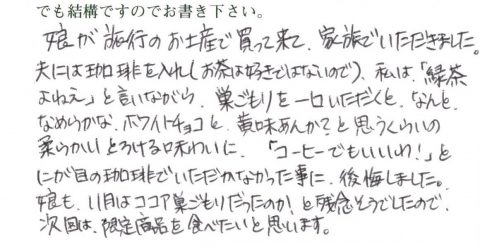 でも結構ですのでお書き下さい。
娘が旅行のお土産で買って来て、家族でいただきました。
夫には珈琲を入れ(お茶は好きではないので)、私は、「緑茶
よねえ」と言いながら、巣ごもりを一口いただくと、なんと、
なめらかな、ホワイトチョコと、黄味あんか?と思うくらいの
柔らかい とろける味わいに、「コーヒーでもいいしい!」と
にが目の珈琲でいただかなかった事に、後悔しました。
娘も、11月はココア巣ごもりだったのか!と残念そうでしたので、
次回は、限定商品を食べたいと思います。